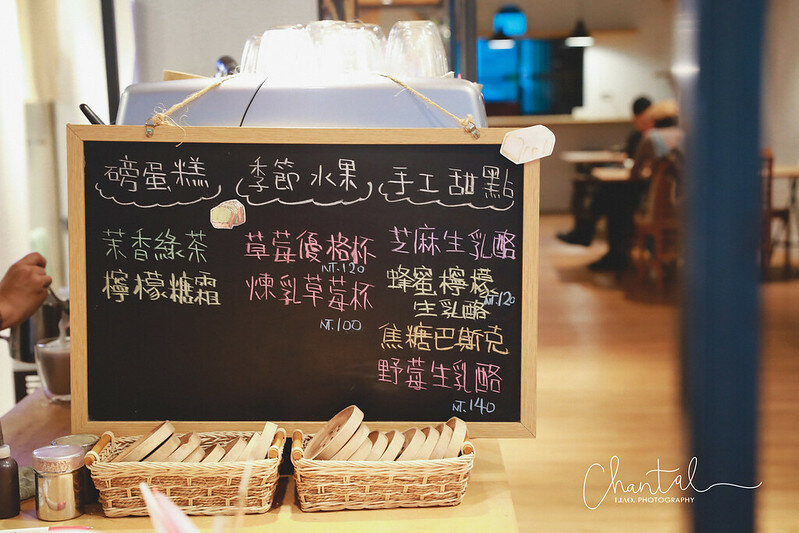 磅蛋糕
茉香綠茶
檸檬糖霜
季節水果
草莓優格杯
NT.120
煉乳草莓杯
NT.100
手工甜點
芝麻生乳酪
蜂蜜檸檬
生乳酪
NT.120
焦糖巴斯克
野莓生乳酪
NT.140
Chantal
PHOTOGRAPHY